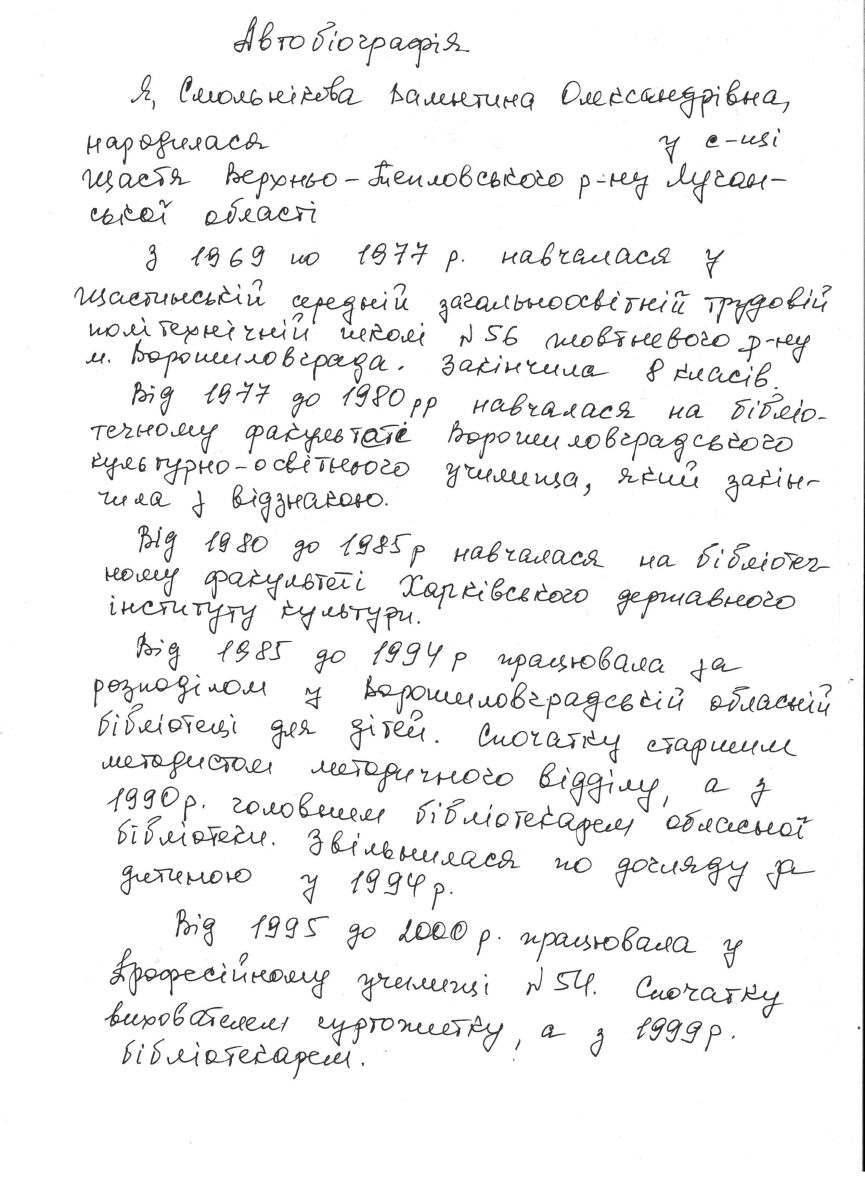 Автобіографія
Я, Смольнікова Валентина Олександрівна,
народилася у с-щі
Щастя Верхньо-Тепловського р-ну Луган-
ської області
З 1969 по 1977 р. навчалася у
Щастинській середній загальноосвітній трудовій
політехнічній школі №56 Жовтневого р-ну
м. Ворошиловграда. Закінчила 8 класів.
Від 1977 до 1980 рр навчалася на бібліо-
течному факультеті Ворошиловградського
культурно-освітнього училища, який закін-
чила з відзнакою.
Від 1980 до 1985 р навчалася на бібліотеч-
ному факультеті Харківського державного
інституту культури.
Від 1985 до 1994 р працювала за
розподілом у Ворошиловградській обласній
бібліотеці для дітей. Спочатку старшим
методистом методичного відділу, а з
1990р. головним бібліотекарем обласної
бібліотеки. Звільнилася по догляду за
дитиною у 1994 р.
Від 1995 до 2000 р. працювала у
Професійному училищі №54. Спочатку
вихователем гуртожитку, а з 1999р.
бібліотекарем.